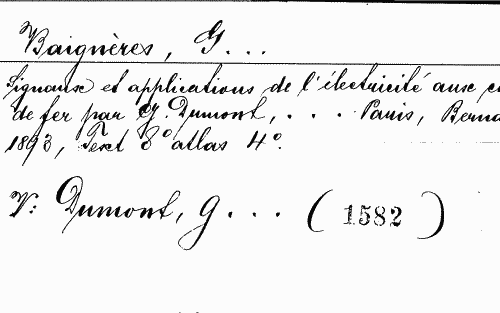 Baignères, G...
Signaux et applications de l'électricité aux c
de fer par G. Dumont, ... Paris, Berna
1893, Text 8° atlas 4°.
V: Dumont, G... (1582)